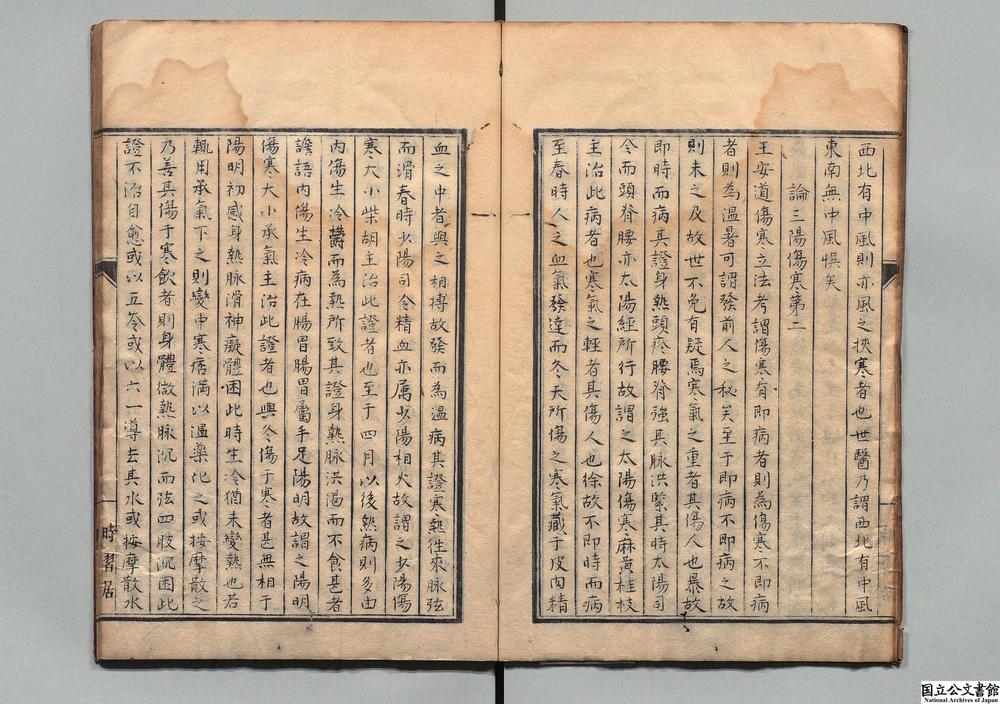 西北有中風則亦風之挾寒者也世醫乃謂西北有中風
東南無中風悞矣
論三陽傷寒第二
王安道傷寒立法考謂傷寒有即病者則為傷寒不即病
者則為溫暑可謂發前人之秘矣至于即病不即病之故
則未之及故世不免有疑焉寒氣之重者其傷人也暴故
即時而病其證身熱頭疼腰脊強其脉洪緊其時太陽司
令而頭脊腰亦太陽經所行故謂之太陽傷寒麻黃桂枝
主治此病者也寒氣之輕者其傷人也徐故不即時而病
至春時人之血氣發達而冬天所傷之寒氣藏于皮肉精
血之中者與之相搏故發而為溫病其證寒熱徃來脉弦
而滑春時少陽司令精血亦属少陽相火故謂之少陽傷
寒大小柴胡主治此證者也至于四月以後熱病則多由
內傷生冷欝而為熱所致其證身熱脉洪滔而不食甚者
譫語內傷生冷病在腸胃腸胃屬手足陽明故謂之陽明
傷寒大小承氣主治此證者也與冬傷于寒者甚無相于
陽明初感身熱脉滑神癡體困此時生冷猶未變熱也若
輒用承氣下之則變中寒痞滿以溫藥化之或按摩散之
乃善其傷于寒飲者則身體微熱脉沉而弦四肢沉困此
證不治自愈或以五苓或以六一導去其水或按摩散水
時習居
国立公文書館
National Archives of Japan